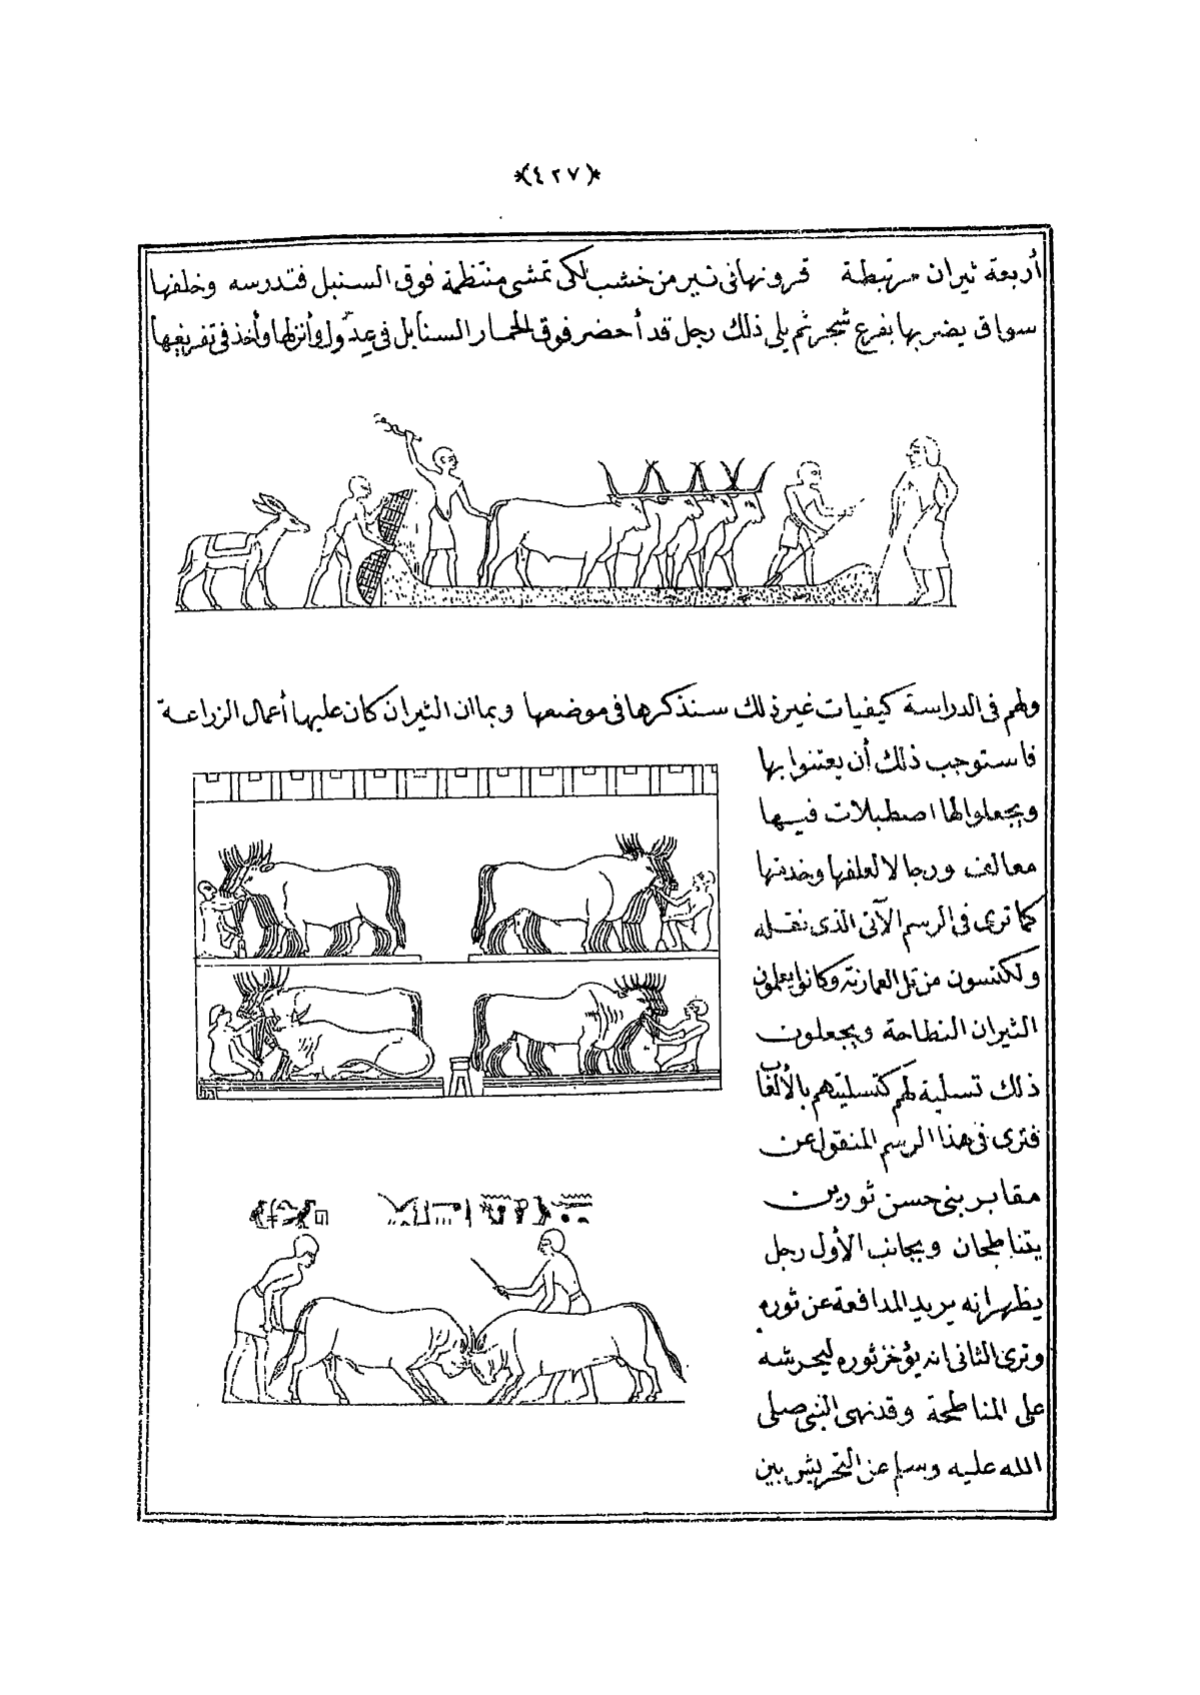 *(٤٢٧)*
أربعة ثيران مرتبطة قرونها فى نير من خشب لكى تمشى منتظمة فوق السنبل فتدرسه وخلفها
سواق يضربها بفرع شجر ثم يلى ذلك رجل قد أحضر فوق الحمار السنابل فى عِدْول وأنزلها وأخذ فى تفريغها
ولهم فى الدراسة كيفيات غير ذلك سنذكرها فى موضعها وبما ان الثيران كان عليها أعمال الزراعة
فاستوجب ذلك أن يعتنوا بها
ويجعلوا لها اصطبلات فيها
معالف ورجالا لعلفها وخدمتها
كما ترى فى الرسم الآتى الذى نقله
ولكنسون من تل العمارنة وكانوا يعلمون
الثيران النطاحة ويجعلون
ذلك تسلية لهم كتسليتهم بالألعاب
فترى فى هذا الرسم المنقول عن
مقابر بنى حسن ثورين
يتناطحان وبجانب الأول رجل
يظهر انه يريد المدافعة عن ثوره
وترى الثانى انه يؤخز ثوره ليحرشه
على المناطحة وقد نهى النبى صلى
الله عليه وسلم عن التحريش بين